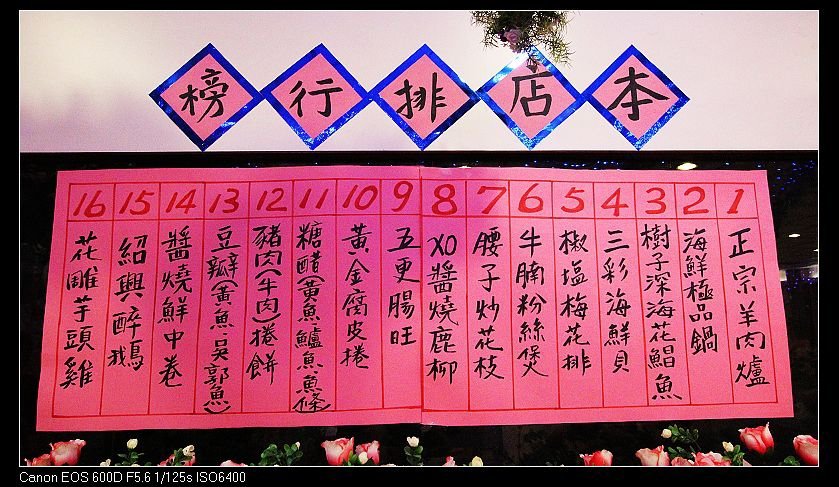 本店排行榜
1 正宗羊肉爐
2 海鮮極品鍋
3 樹子深海花鯧魚
4 三彩海鮮貝
5 椒塩梅花排
6 牛腩粉絲煲
7 腰子炒花枝
8 XO醬燒鹿柳
9 五更腸旺
10 黃金腐皮捲
11 糖醋(黃魚鱸魚魚條)
12 豬肉(牛肉)捲餅
13 豆瓣(黃魚吳郭魚)
14 醬燒鮮中卷
15 紹興醉鵝
16 花雕芋頭雞
Canon EOS 600D F5.6 1/125s ISO6400